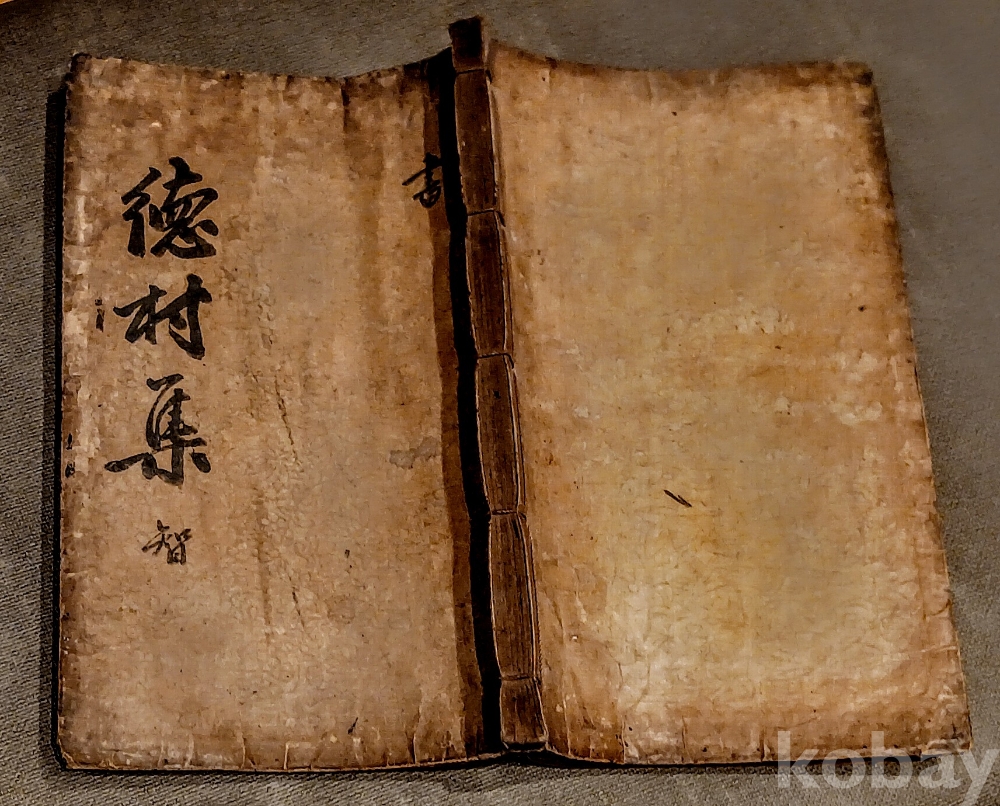 德村集
智
書
kobay